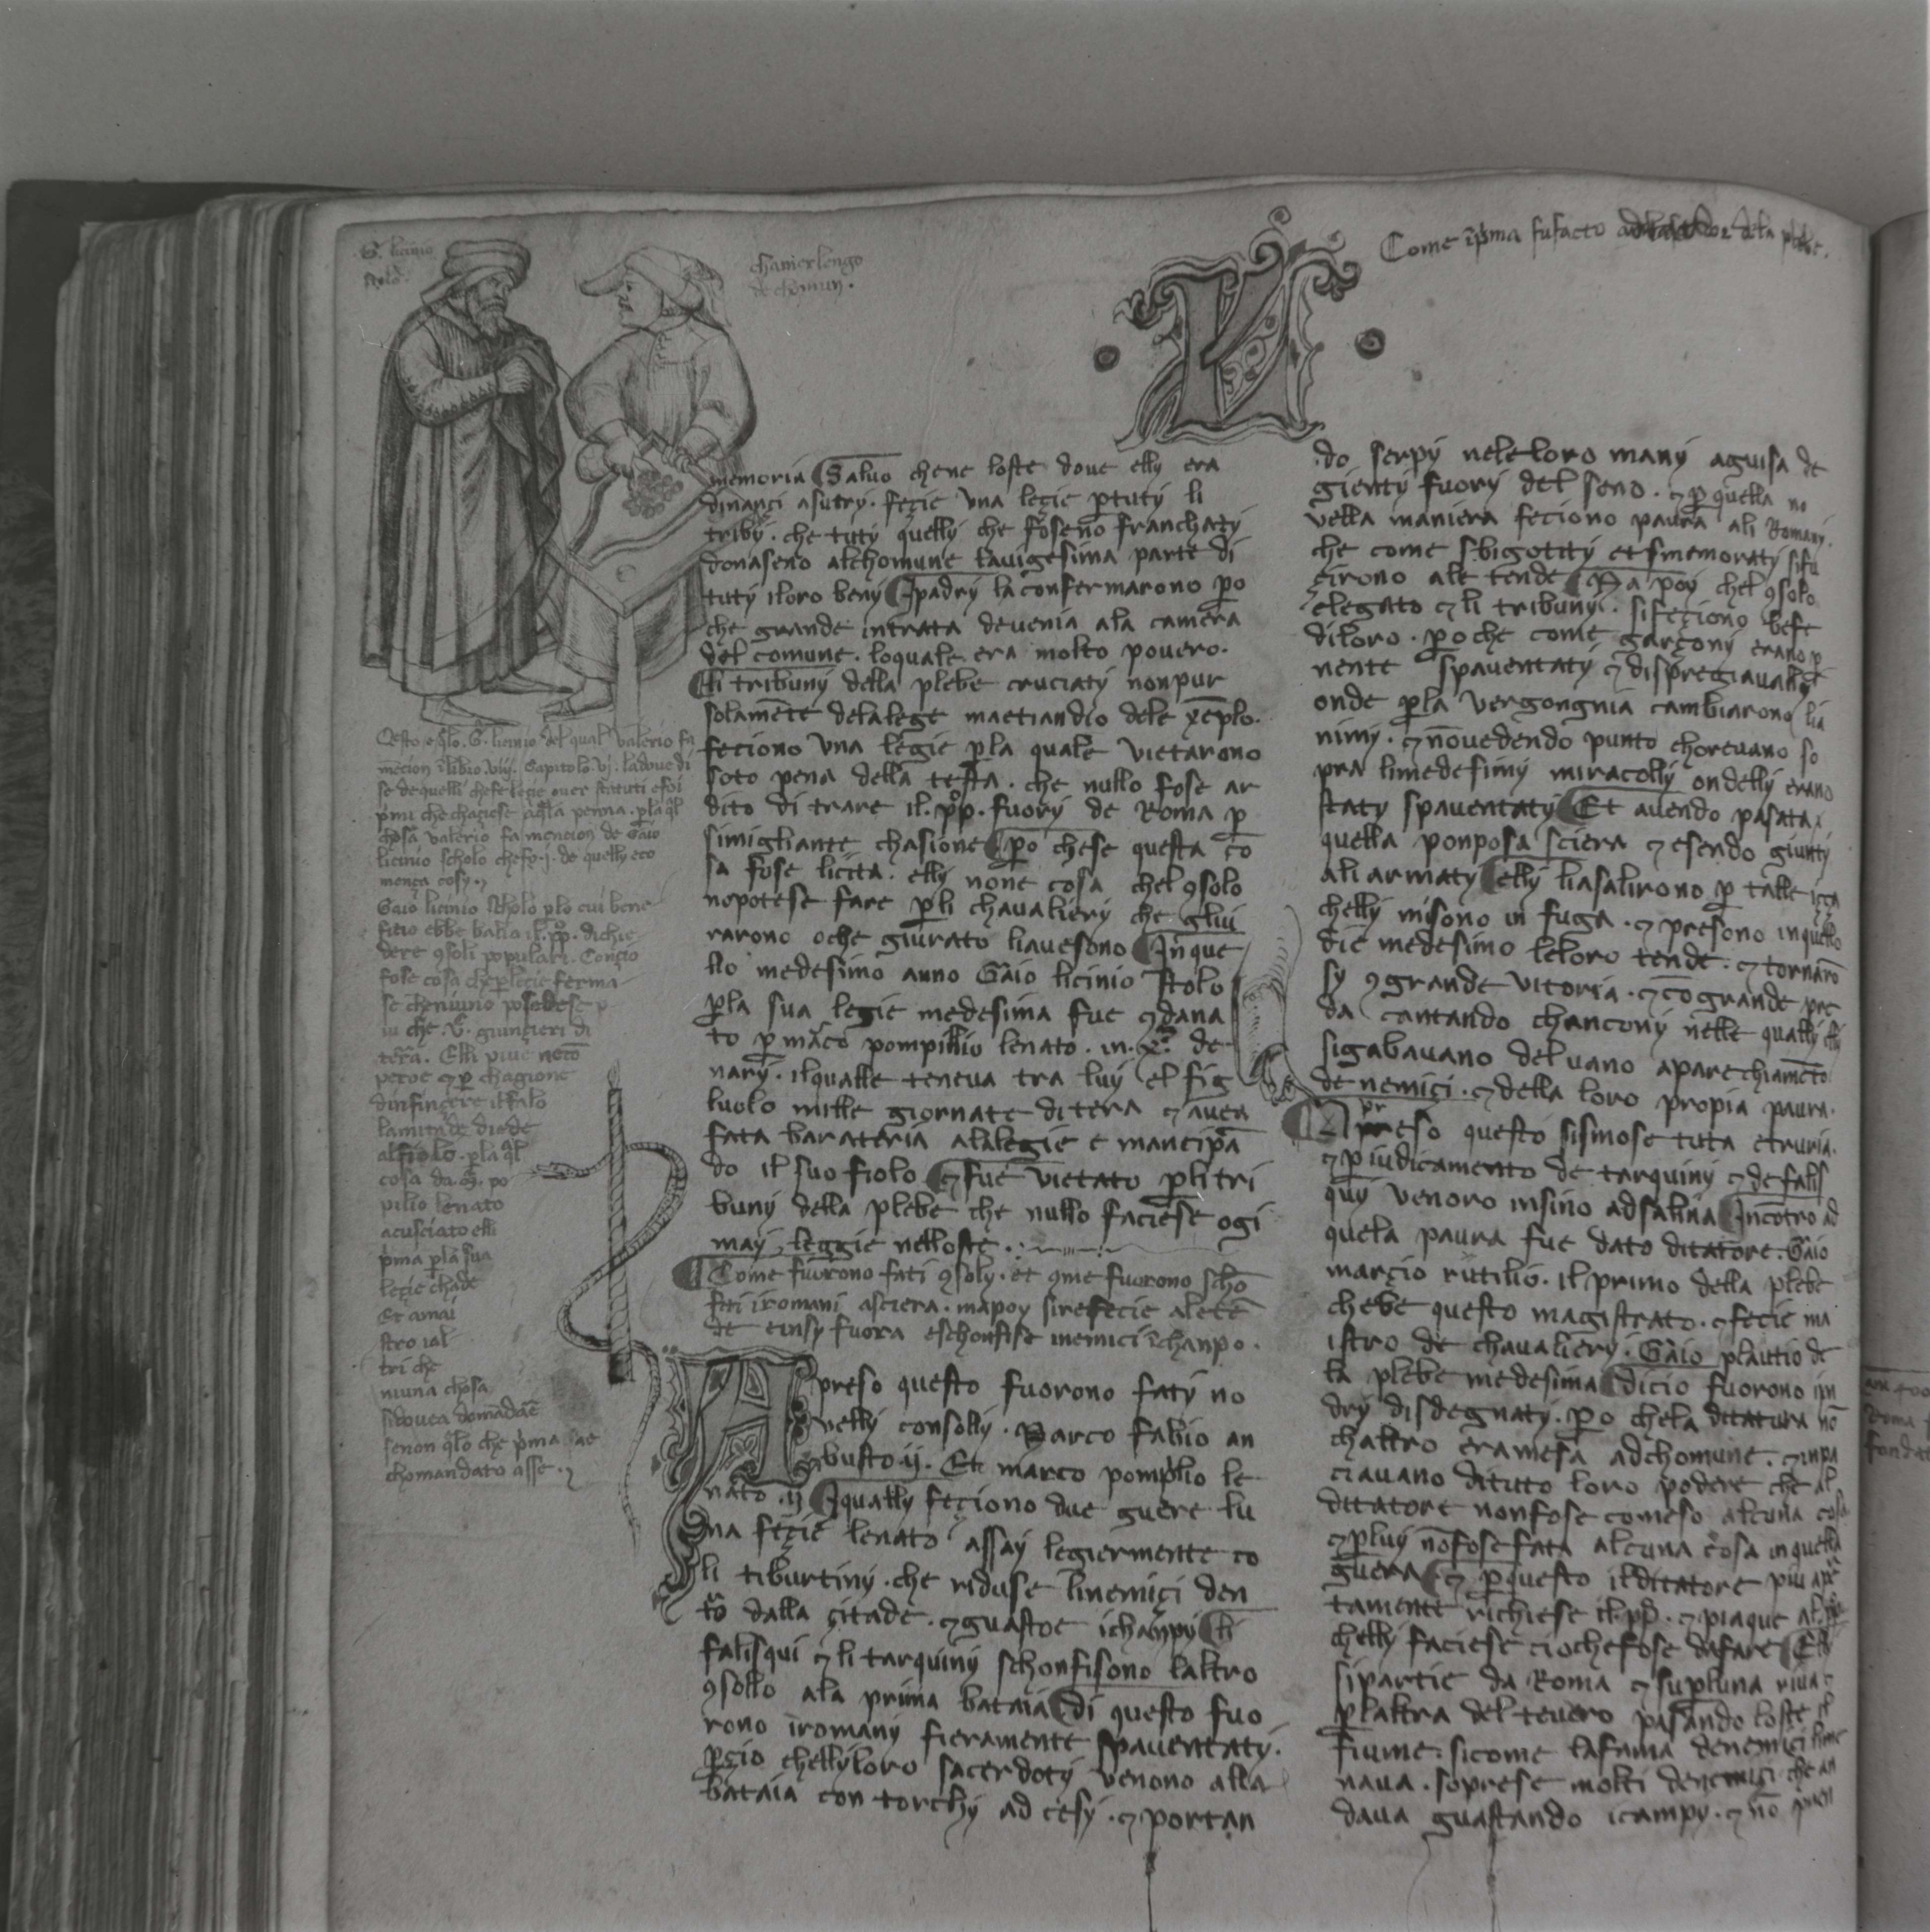 G. licinio
stolo.
chamerlengo
de chomun.
Come i p̃ma fu facto dela plebe.
memoria Saluo chene loste doue elly era
dinançi asutry. feçie una leçie p̱ tuty li
triby. che tuty quelly che foseno franchaty
donaseno alchomune la uigesima parte di
tuty iloro beny Ipadry la confermarono p̱o
che grande intrata deuenia ala camera
del comune. loquale era molto pouero.
Li tribuny della plebe cruciaty non pur
solamēte dela lege ma etiandio dele xēplo.
feciono una legie p̱la quale uietarono
soto pena della testa. che nullo fose ar
dito di trare il. pp̊. fuory de Roma p̱
simigliante chasione p̱o chese questa co
sa fose licita. elly none cosa chel ꝯsolo
nopotese fare p̱li chaualiery che gliui
rarono oche giurato liauesono In que
llo medesimo anno Gaio licinio stolo
p̱la sua legie medesima fue ꝯdana
to p̱ marco pompillio lenato. in. x.ᵃ de
nary. ilqualle teneua tra luy el fig
luolo mille giornate di tera ⁊ auea
fata barateria alalegie e mancipa
do il suo fiolo ⁊ fue uietato p̱li tri
buny della plebe che nullo faciese ogi
may leggie nelloste.
Come fuorono fati ꝯsoly. et ꝯme fuorono scho
fiti i romani asciera. mapoy sirefecie aletē
de einsy fuora eschonfise inemici ĩ chanpo.
Apreso questo fuorono faty no
uelly consolly. Marco fabio an
busto. ij. Et marco pompilio le
nato. ij Iqually feçiono due guere lu
na feçie lenato assay legiermente co
li tiburtiny. che riduse li nemiçi den
tro dalla çitade. ⁊ guastoe ichanpy li
falisqui ⁊ li tarquiny schonfisono laltro
ꝯsollo ala prima bataia di questo fuo
rono iromany fieramente spauentaty.
p̱çio chelly loro sacerdoty uenono alla
bataia con torchy ad cesy. ⁊ portan
do serpy nele loro many aguisa de
gienty fuory del seno. ⁊ p̱ quella no
uella maniera feciono paura ali Romany.
che come sbigotity et smemoraty sifu
girono ale tende Ma poy chel ꝯsolo
elegato ⁊ li tribuny. sifeçiono befe
diloro. p̱o che come garçony erano p̱
nente spauentaty ⁊ dispregiaualli
onde p̱la uergongnia cambiarono lia
nimy. ⁊ nō uedendo punto choreuano so
pra limedesimy miracolly ondelly erano
staty spauentaty Et auendo pasata
quella ponposa sciera ⁊ esendo giunty
ali armaty elly liasalirono p̱ talle
chelly misono in fuga. ⁊ presono in quello
die medesimo leloro tende. ⁊ tornarō
sy ꝯ grande uitoria. ⁊ cō grande pre
da cantando chançony nelle qually elly
sigabauano del uano aparechiamēto
de nemiçi. ⁊ della loro propia paura.
Apreso questo sismose tuta etruria.
⁊ p̱ iudicamento de tarquiny ⁊ de falis
quy uenoro insino ad salina Incōtro ad
quela paura fue dato ditatore. Gaio
marçio rutilio. il primo della plebe
chebe questo magistrato. ⁊ fecie ma
istro de chaualiery. Gaio plautio de
la plebe medesima dicio fuorono i pa
dry disdegnaty. p̱o chela ditatura nō
chaltro era mesa ad chomune. ⁊ inpa
ciauano di tuto loro podere che al
ditatore non fose comeso alcuna cosa
⁊ p̱ luy nō fose fata alcuna cosa in quella
guera ⁊ p̱ questo il ditatore piu apē
tamente richiese il. pp̊. ⁊ piaque al. pp̊.
chelly faciese cio che fose da fare Elly
sipartie da Roma ⁊ sup̱ luna riua ⁊
p̱ laltra del teuero pasando loste il
fiume. sicome la fama de nemiçi lime
naua. soprese molti de nemiçi che an
daua guastando icampy. ⁊ nō
Qesto e q̃lo. G. licinio del qual Valerio fa
mēcion i libro. viij. Capitolo. vj. ladoue di
se de quelli chefe leçie ouer statuti e foi
p̃mi che chaçiese a q̃la penna. p̱la q̃l
chosa Valerio fa mencion de Gaio
licinio scholo chefo. j. de quelly eco
mença cosy.
Gaio licinio stholo p̱lo cui bene
fitio ebbe balia il. pp̊. di chie
dere ꝯsoli populari. Conçio
fose cosa che p̱ leçie ferma
se cheniuno posedese p
iu che. V. giunçieri di
tera. Elli piue neco
peroe ⁊ p̱ chagione
dinfingere ilfalo
lamitade diede
al fiolo. p̱la q̃l
cosa da. M. po
pilio lenato
acusciato elli
p̃ma p̱la sua
leçie chade
Et amai
stro ial
tri che
niuna chosa
sidouea domādare
senon q̃lo che p̃ma
chomandato asse.
Roma
fondat